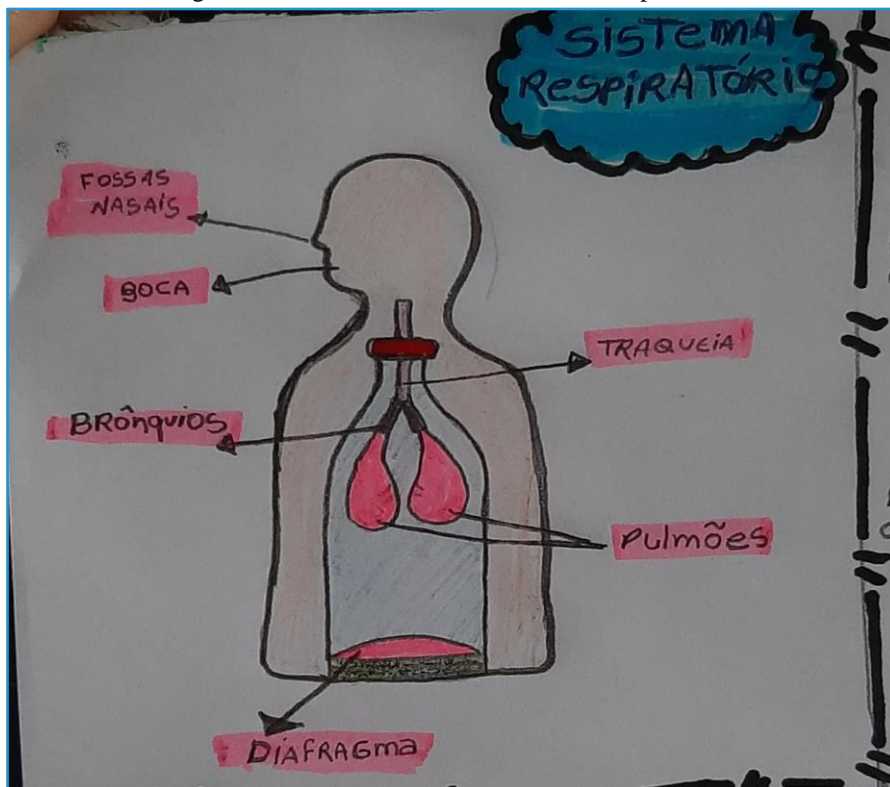 SISTEMA
RESPIRATÓRIO
FOSSAS
NASAIS
BOCA
TRAQUEIA
BRÔNQUIOS
PULMÕES
DIAFRAGMA